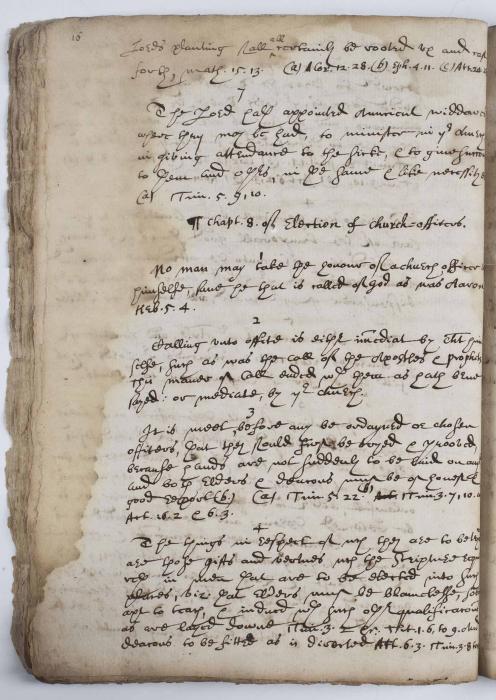 16
Lords planting shall all certainly be rooted up and cast
forth, math. 15.13. (a) 1 Cor. 12.28. (b) Eph. 4.11.
7
The Lord hath appointed ancient widdows
where they may be had, to minister in ye church
in giving attendance to the sicke, & to give succour
to them and others, in the same & like necessities
(a) 1 Tim. 5. 9, 10.
¶ Chapt. 8. of Election of church-officers.
No man may take the honour of a church officer
himselfe, save he that is called of God as was Aaron
Heb. 5. 4.
2
Calling unto office is either imediat by
selfe, such as was the call of the Apostles & prophets
this manner of call ended wth them as hath bene
sayed: or mediate, by ye church.
3
It is meet, before any be ordayned or chosen
officers, that they should first be tryed & prooved,
because hands are not suddenly to be laid on any
and both Elders & deacons must be of honest &
good Report (b) (a) 1 Tim. 5. 22. (b) 1 Tim. 3. 7, 10.
Act. 16. 2 & 6. 3.
4
The things in respect of wch they are to be
are those gifts and vertues wch the Scripture
in men that are to be elected into such
places, viz that Elders must be blamelesse,
apt to teach, & indued wth such other qualifications
as are layed downe 1 Tim. 3. 2 Tit. 1. 6, to 9.
deacons to be fitted as is directed Act. 6. 3. 1 Tim. 3. 8